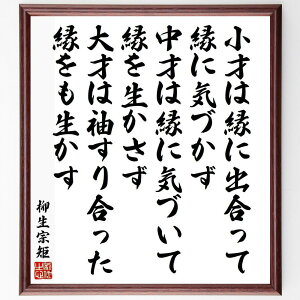 小才は縁に出合って
縁に気づかず
中才は縁に気づいて
縁を生かさず
大才は袖すり合った
縁をも生かす
柳生宗矩